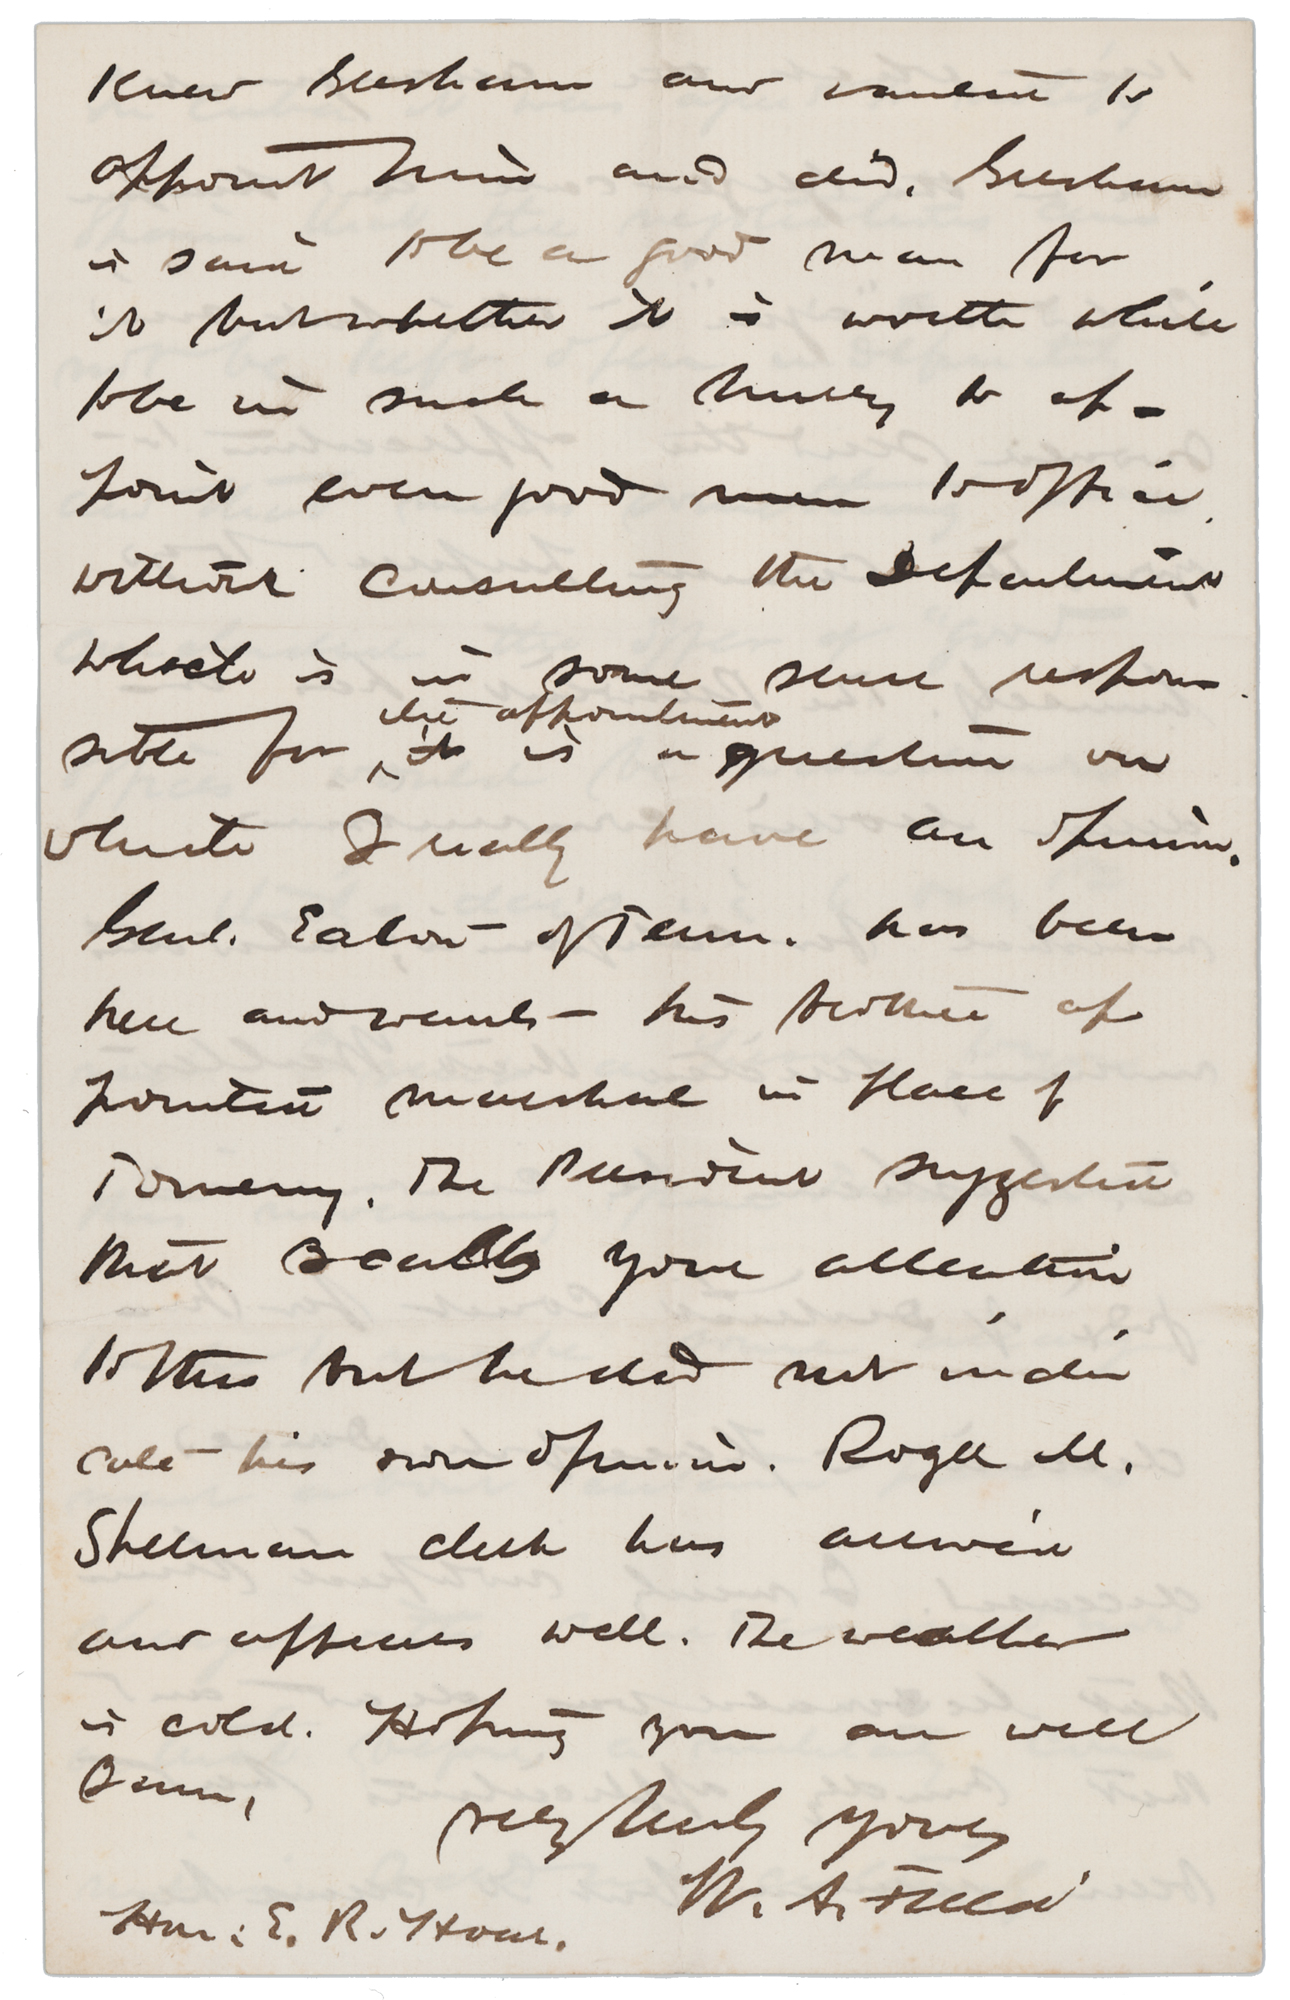 knew Gresham and wanted to
appoint him and did. Gresham
is said to be a good man for
it but whether it is worth while
to be in such a hurry to ap-
point even good men to office
without consulting the Department
which is in some sense respon
sible for
the appointment
it is a question on
which I really have an opinion.
Genl. Eaton of Tenn. has been
here and wants his brother ap
pointed marshal in place of
The President suggested
that I call your attention
to this but he did not indi
cate his own opinion. Roger M.
Sherman clerk has arrived
and appears well. The weather
is cold. Hoping you are well
I am,
very truly yours
W. A. Field
Hon. E. R. Hoar.